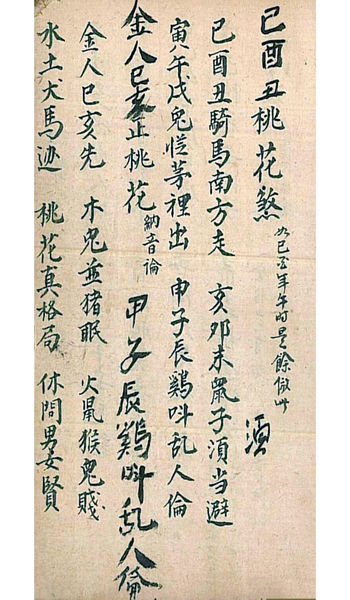 巳酉丑桃花煞 如巳酉丑年午時是餘倣此
巳酉丑騎馬南方走 亥卯未鼠子須当避 須
寅午戌兔從茅裡出 申子辰鷄呌乱人倫
金人巳亥正桃花 納音論 甲子辰鷄呌乱人倫
金人巳亥先 木兔並猪眠 火鼠猴兔賤
水土犬馬迹 桃花真格局 休問男女賢